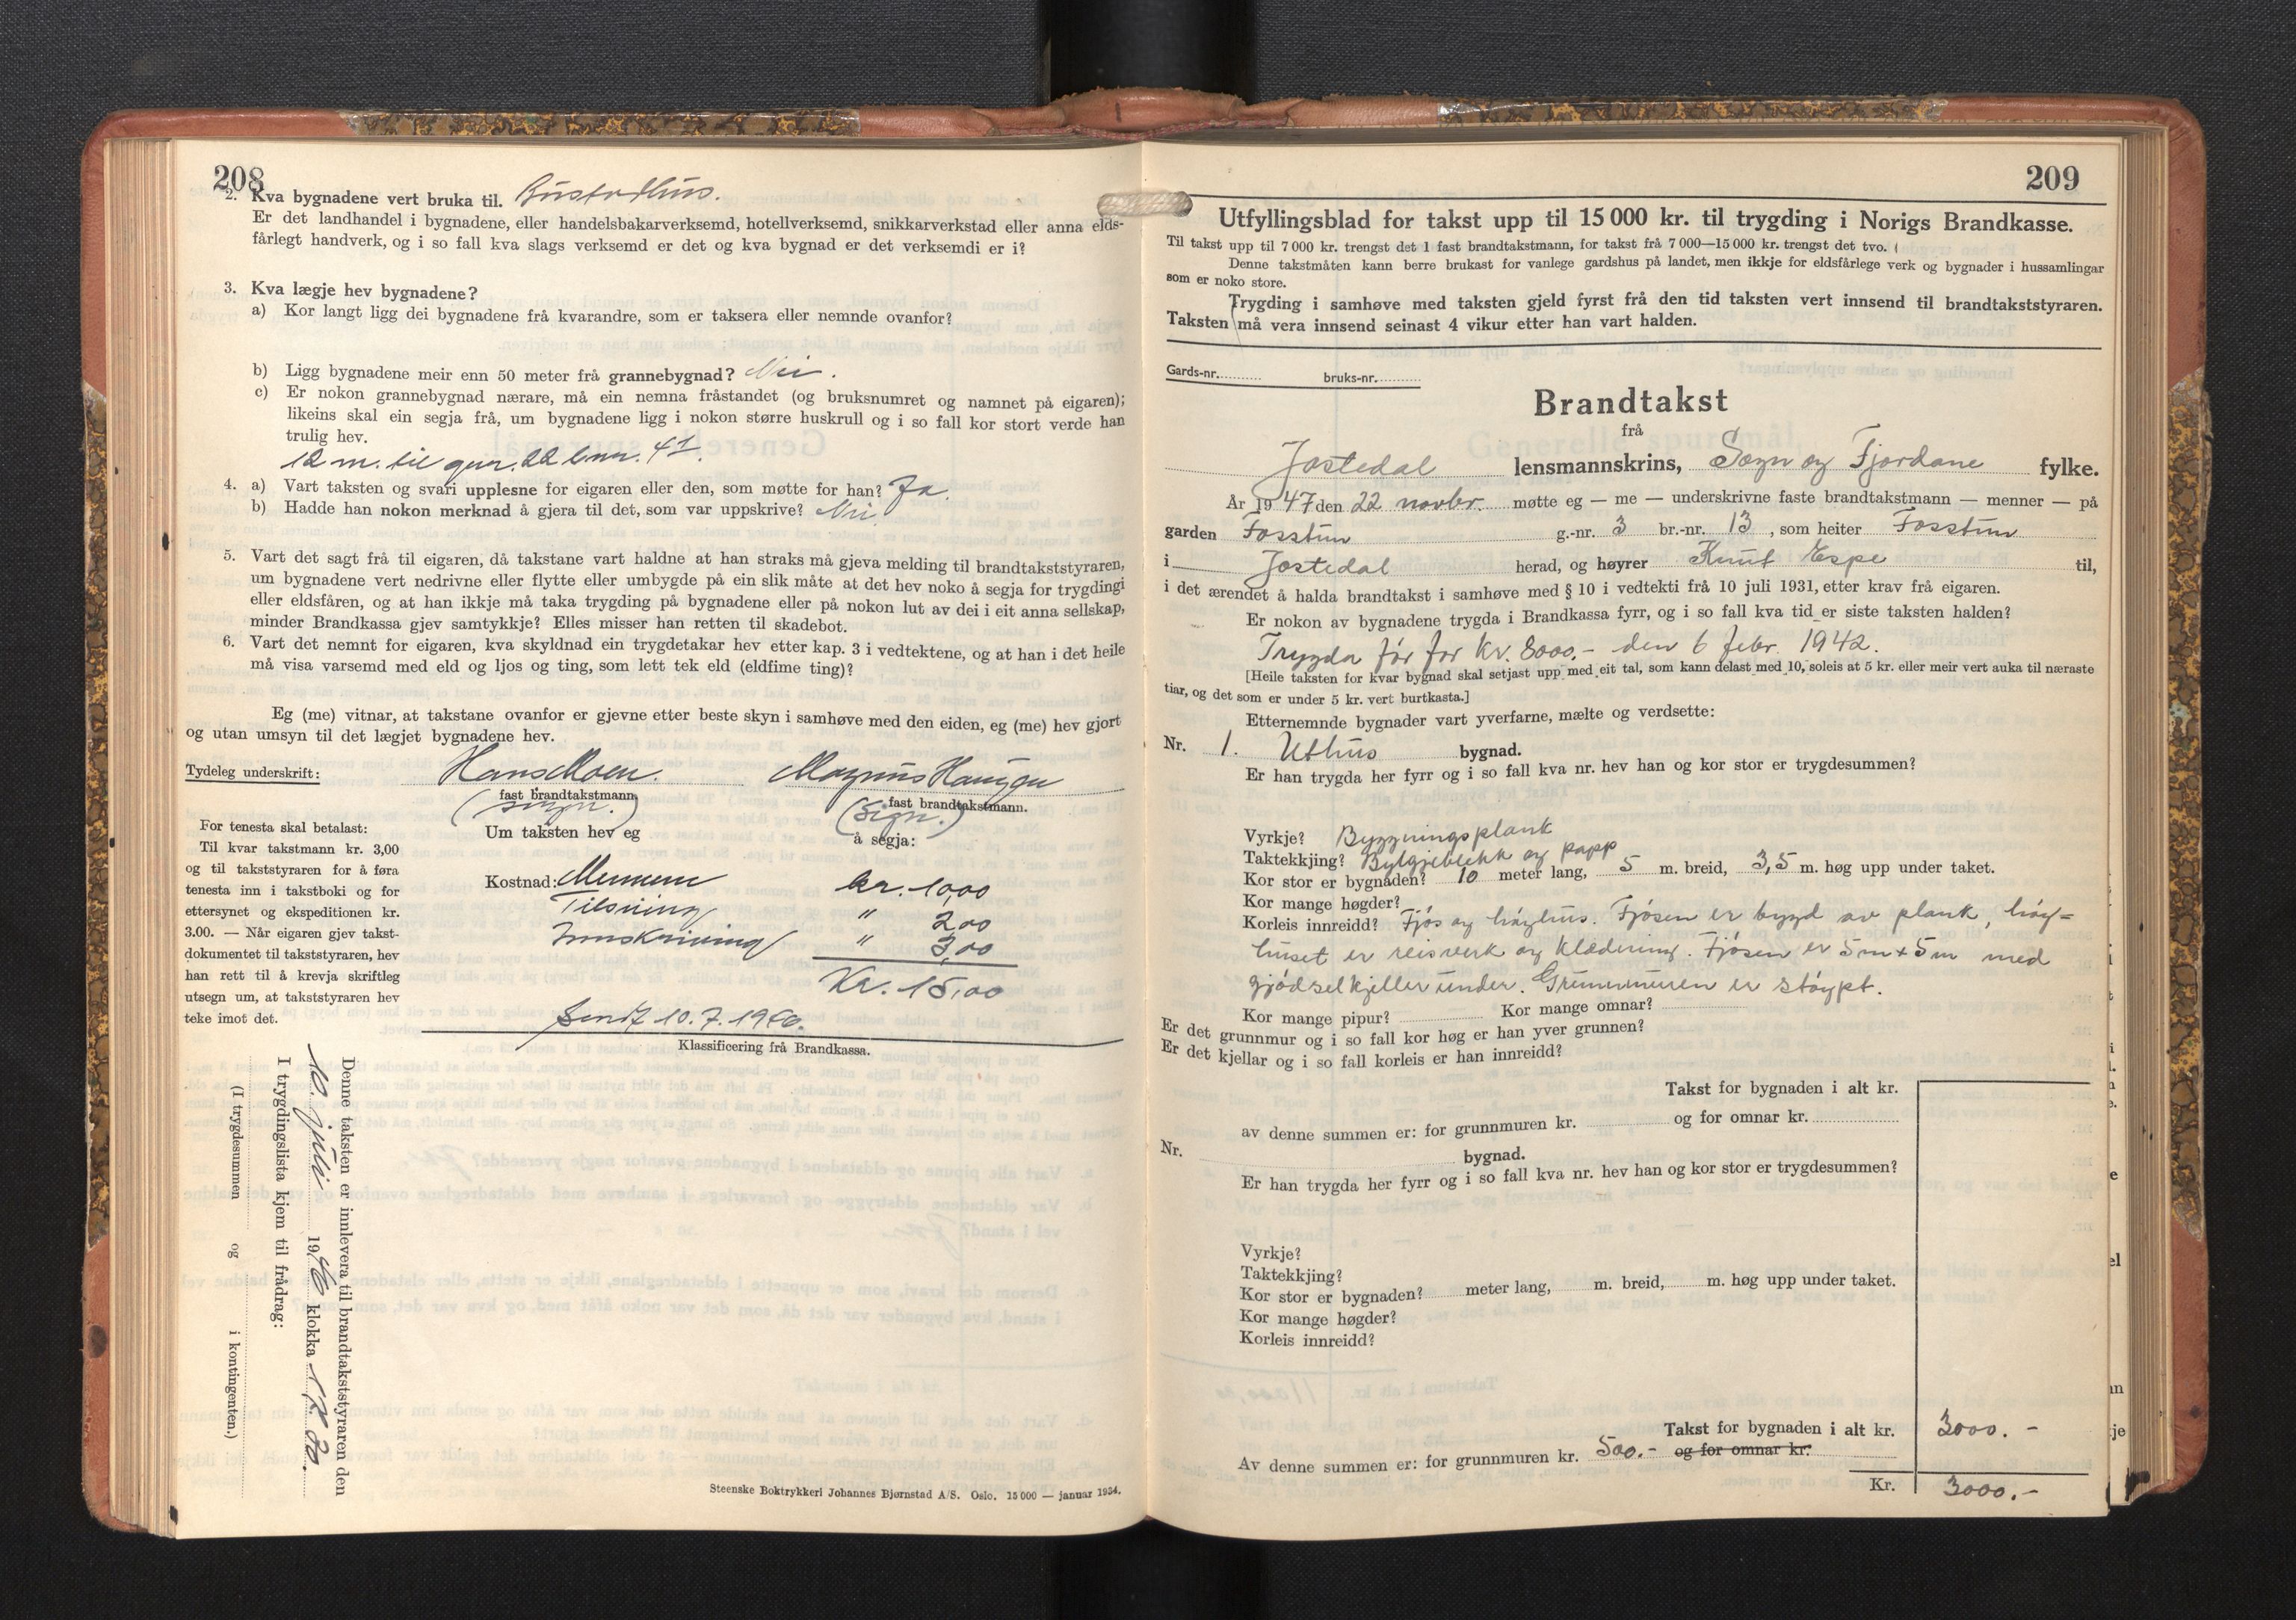 208
2. Kva bygnadene vert bruka til. Bustadhus.
Er det landhandel i bygnadene, eller handelsbakarverksemd, hotellverksemd, snikkarverkstad eller anna elds-
fårlegt handverk, og i so fall kva slags verksemd er det og kva bygnad er det verksemdi er i?
3. Kva lægje hev bygnadene?
a) Kor langt ligg dei bygnadene frå kvarandre, som er taksera eller nemnde ovanfor?
b) Ligg bygnadene meir enn 50 meter frå grannebygnad? Nei.
c) Er nokon grannebygnad nærare, må ein nemna fråstandet (og bruksnumret og namnet på eigaren);
likeins skal ein segja frå, um bygnadene ligg i nokon større huskrull og i so fall kor stort verde han
trulig hev.
12 m. til gnr. 22 bnr. 41.
4. a) Vart taksten og svari upplesne for eigaren eller den, som møtte for han? Ja.
b) Hadde han nokon merknad å gjera til det, som var uppskrive? Nei.
5. Vart det sagt frå til eigaren, då takstane vart haldne at han straks må gjeva melding til brandtakststyraren,
um bygnadene vert nedrivne eller flytte eller umbygde på ein slik måte at det hev noko å segja for trygdingi
eller eldsfåren, og at han ikkje må taka trygding på bygnadene eller på nokon lut av dei i eit anna sellskap,
minder Brandkassa gjev samtykkje? Elles misser han retten til skadebot.
6. Vart det nemnt for eigaren, kva skyldnad ein trygdetakar hev etter kap. 3 i vedtektene, og at han i det heile
må visa varsemd med eld og ljos og ting, som lett tek eld (eldfime ting)?
Eg (me) vitnar, at takstane ovanfor er gjevne etter beste skyn i samhøve med den eiden, eg (me) hev gjort
og utan umsyn til det lægjet bygnadene hev.
Tydeleg underskrift: Hans Moen. Magnus Haugen
fast brandtakstmann. fast brandtakstmann.
(sign.) (sign.)
Um taksten hev eg å segja:
For tenesta skal betalast:
Til kvar takstmann kr. 3,00
og til takststyraren for å føra
tenesta inn i takstboki og for
ettersynet og ekspeditionen kr.
3.00. — Når eigaren gjev takst-
dokumentet til takststyraren, hev
han rett til å krevja skriftleg
utsegn um, at takststyraren hev
teke imot det.
Kostnad: Mennene kr. 10,00
Tilsning " 2,00
Innskriving " 3,00
Kr. 15,00
Sendt 10.7.1946.
Klassificering frå Brandkassa.
Denne taksten er innlevera til brandtakststyraren den
10. juli 1946 klokka 17.30.
I trygdingslista kjem til frådrag:
(I trygdesummen og i kontingenten.)
Steenske Boktrykkeri Johannes Bjørnstad A/S. Oslo. 15 000 — januar 1934.
209
Utfyllingsblad for takst upp til 15 000 kr. til trygding i Norigs Brandkasse.
Til takst upp til 7 000 kr. trengst det 1 fast brandtakstmann, for takst frå 7 000—15 000 kr. trengst det tvo.
Denne takstmåten kann berre brukast for vanlege gardshus på landet, men ikkje for eldsfårlege verk og bygnader i hussamlingar
som er noko store.
Trygding i samhøve med taksten gjeld fyrst frå den tid taksten vert innsend til brandtakststyraren.
Taksten må vera innsend seinast 4 vikur etter han vart halden.
Gards-nr. bruks-nr.
Brandtakst
frå
Jostedal lensmannskrins, Sogn og Fjordane fylke.
År 1947 den 22 novbr. møtte eg — me — underskrivne faste brandtakstmann — menner — på
garden Fosstun g.-nr. 3 br.-nr. 13, som heiter Fosstun
i Jostedal herad, og høyrer Knut Espe til,
i det ærendet å halda brandtakst i samhøve med § 10 i vedtekti frå 10 juli 1931, etter krav frå eigaren.
Er nokon av bygnadene trygda i Brandkassa fyrr, og i so fall kva tid er siste taksten halden?
Trygda før for kr. 8000.- den 6 febr. 1942.
[Heile taksten for kvar bygnad skal setjast upp med eit tal, som kann delast med 10, soleis at 5 kr. eller meir vert auka til næraste
tiar, og det som er under 5 kr. vert burtkasta.]
Etternemnde bygnader vart yverfarne, mælte og verdsette:
Nr. 1. Uthus bygnad.
Er han trygda her fyrr og i so fall kva nr. hev han og kor stor er trygdesummen?
Vyrkje? Byggningsplank
Taktekkjing? Bylgjeblekk og papp
Kor stor er bygnaden? 10 meter lang, 5 m. breid, 3,5 m. høg upp under taket.
Kor mange høgder?
Korleis innreidd? Fjøs og høyhus. Fjøsen er bygd av plank, høy-
huset er reisverk og klædning. Fjøsen er 5m x 5m med
gjødselkjeller under. Grunnmuren er støypt.
Kor mange pipur? Kor mange omnar?
Er det grunnmur og i so fall kor høg er han yver grunnen?
Er det kjellar og i so fall korleis er han innreidd?
Takst for bygnaden i alt kr.
av denne summen er: for grunnmuren kr. og for omnar kr.
Nr. bygnad.
Er han trygda her fyrr og i so fall kva nr. hev han og kor stor er trygdesummen?
Vyrkje?
Taktekkjing?
Kor stor er bygnaden? meter lang, m. breid, m. høg upp under taket.
Kor mange høgder?
Korleis innreidd?
Takst for bygnaden i alt kr. 3000.-
Av denne summen er: for grunnmuren kr. 500.- og for omnar kr.
Kr. 3000.-